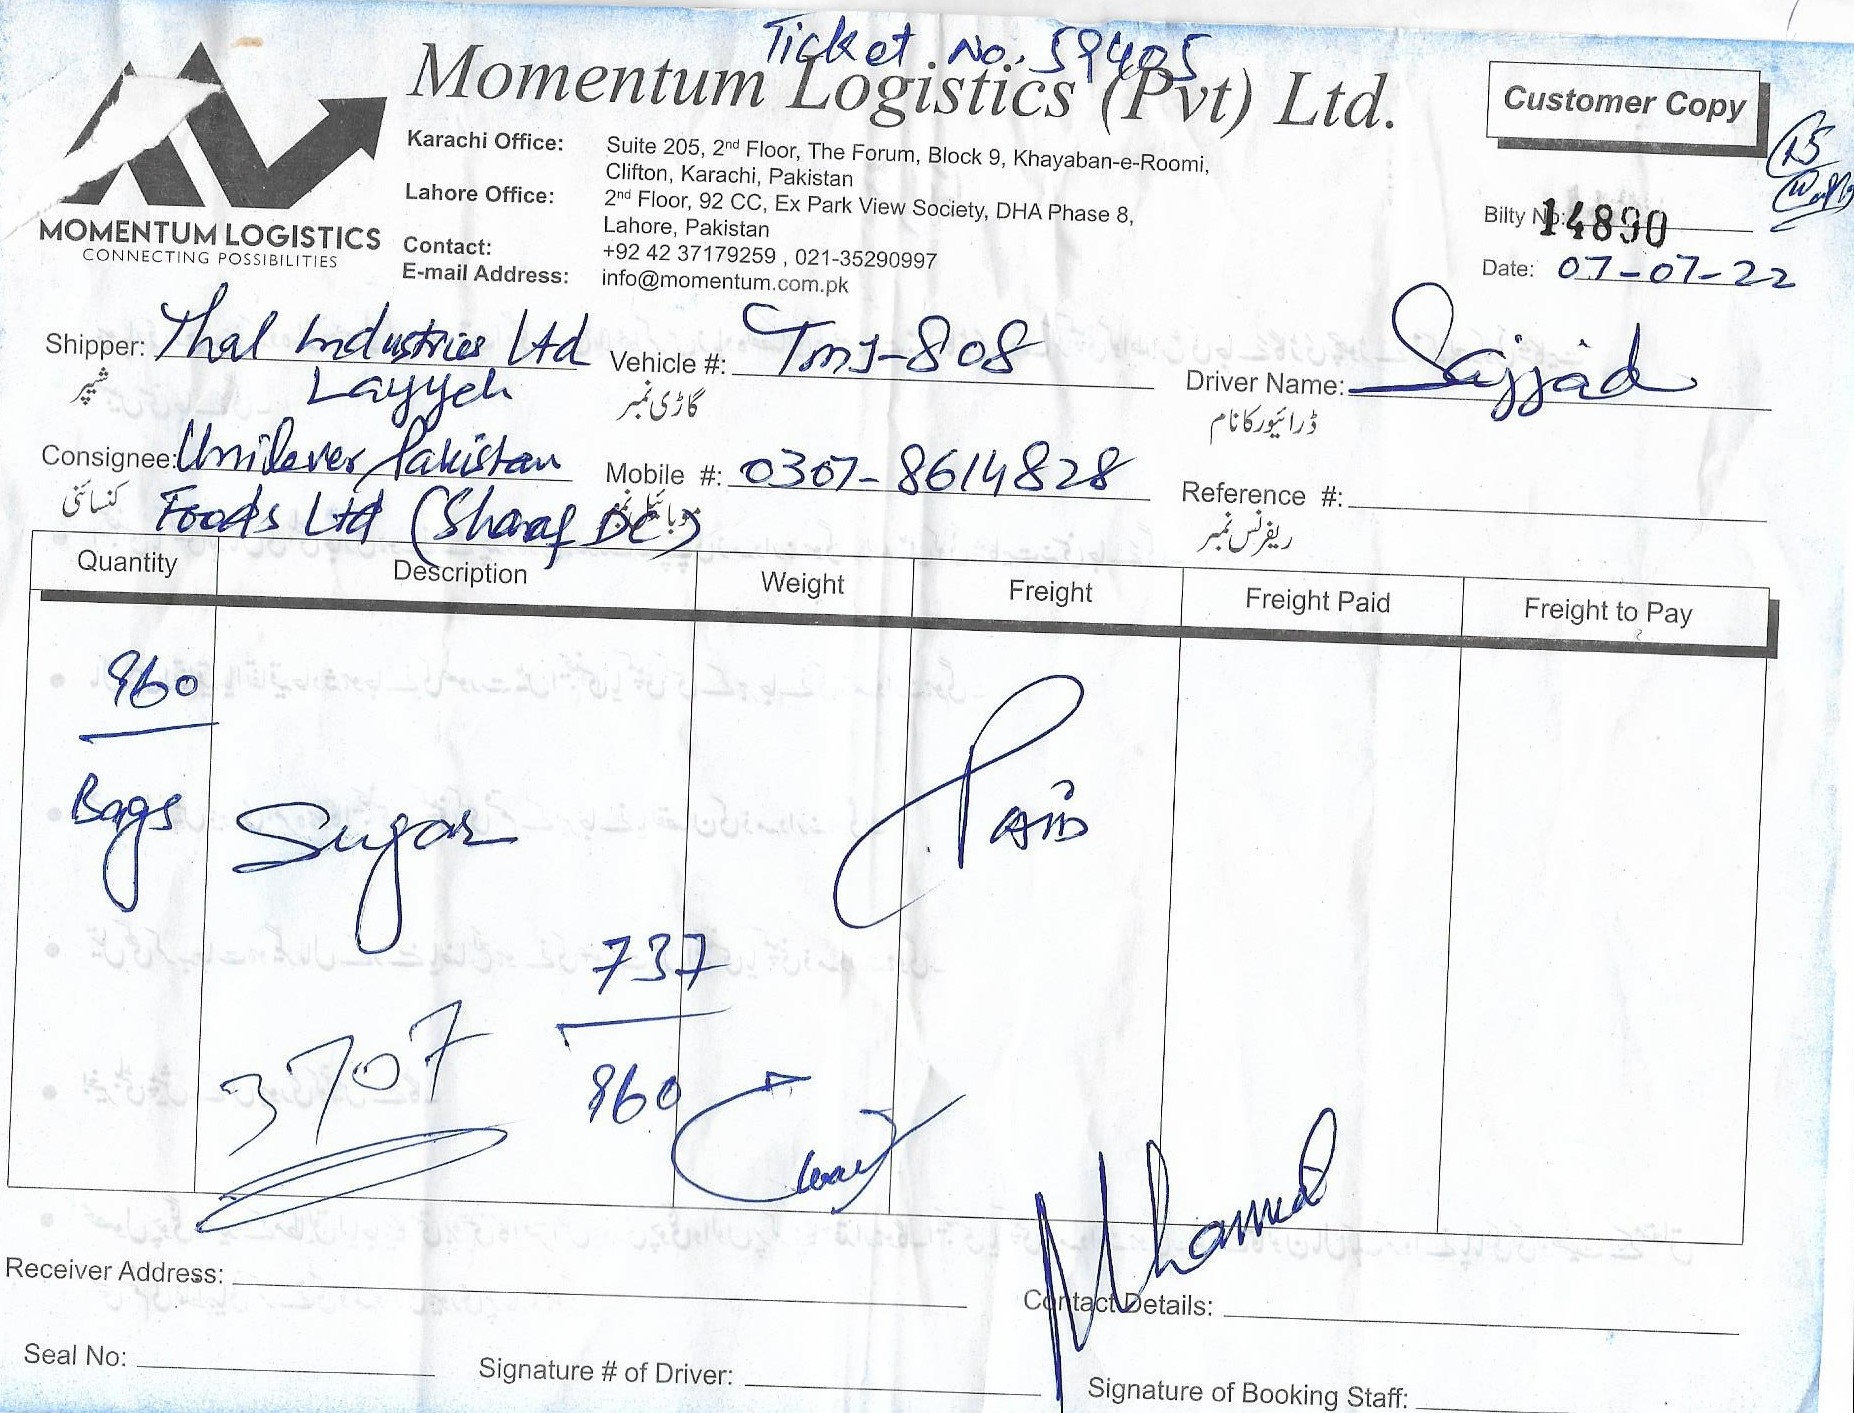 Ticket No. 59405
Momentum Logistics (Pvt) Ltd.
Customer Copy
MOMENTUM LOGISTICS
CONNECTING POSSIBILITIES
Karachi Office: Suite 205, 2nd Floor, The Forum, Block 9, Khayaban-e-Roomi,
Clifton, Karachi, Pakistan
Lahore Office: 2nd Floor, 92 CC, Ex Park View Society, DHA Phase 8,
Lahore, Pakistan
Contact: +92 42 37179259 , 021-35290997
E-mail Address: info@momentum.com.pk
Bilty No: 14890
Date: 07-07-22
Shipper: Thal Industries Ltd Vehicle #: TMJ-808 Driver Name: Sajjad
شیپر Layyah گاڑی نمبر ڈرائیور کا نام
Consignee: Unilever Pakistan Mobile #: 0307-8614828 Reference #:
کنسائنی Foods Ltd (Sharaf DC) موبائل نمبر ریفرنس نمبر
Quantity Description Weight Freight Freight Paid Freight to Pay
960
Bags Sugar Paid
737
3707 960
Receiver Address: Contact Details:
Seal No: Signature # of Driver: Signature of Booking Staff: